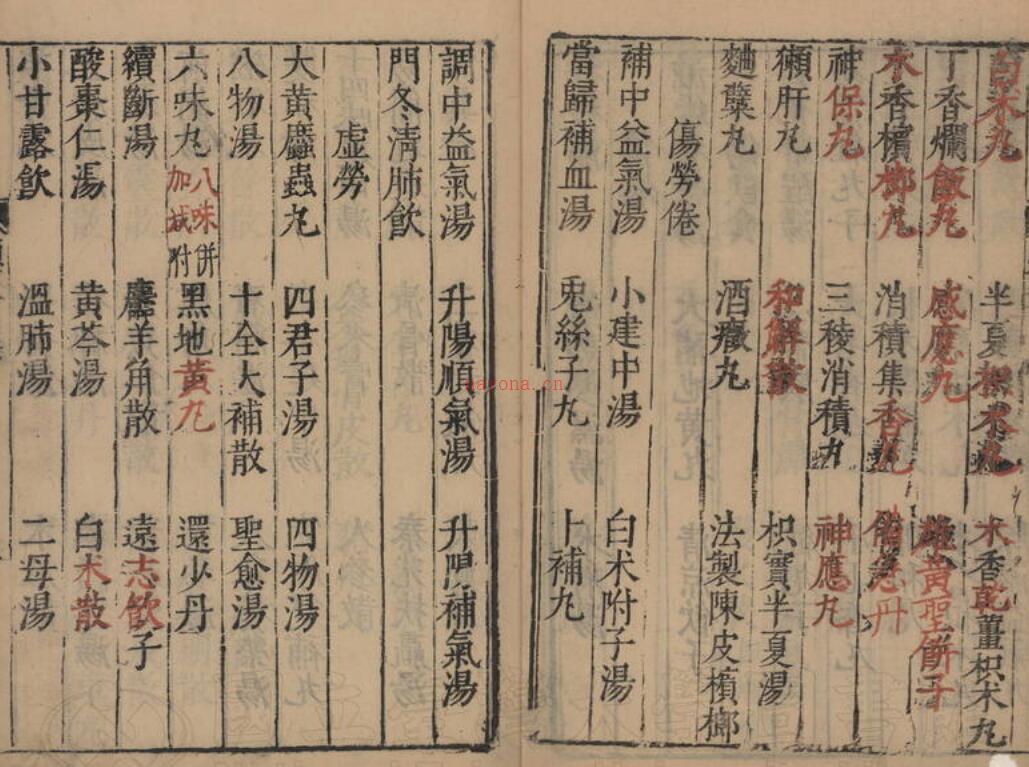 白术丸 半夏术丸 木香乾薑枳术丸
丁香爛飯丸 感應丸 雄黃聖餅子
木香檳榔丸 消積集香丸 備急丹
神保丸 三稜消積丸 神應丸
獺肝丸 和解散 枳實半夏湯
麯櫱丸 酒癥丸 法製陳皮檳榔
傷勞倦
補中益氣湯 小建中湯 白术附子湯
當歸補血湯 兎絲子丸 卜補丸
調中益氣湯 升陽順氣湯 升陽補氣湯
門冬清肺飲
虛勞
大黃䗪蟲丸 四君子湯 四物湯
八物湯 十全大補散 聖愈湯
六味丸 八味併加减附 黑地黃丸 還少丹
續斷湯 麢羊角散 遠志飲子
酸棗仁湯 黃芩湯 白术散
小甘露飲 溫肺湯 二母湯